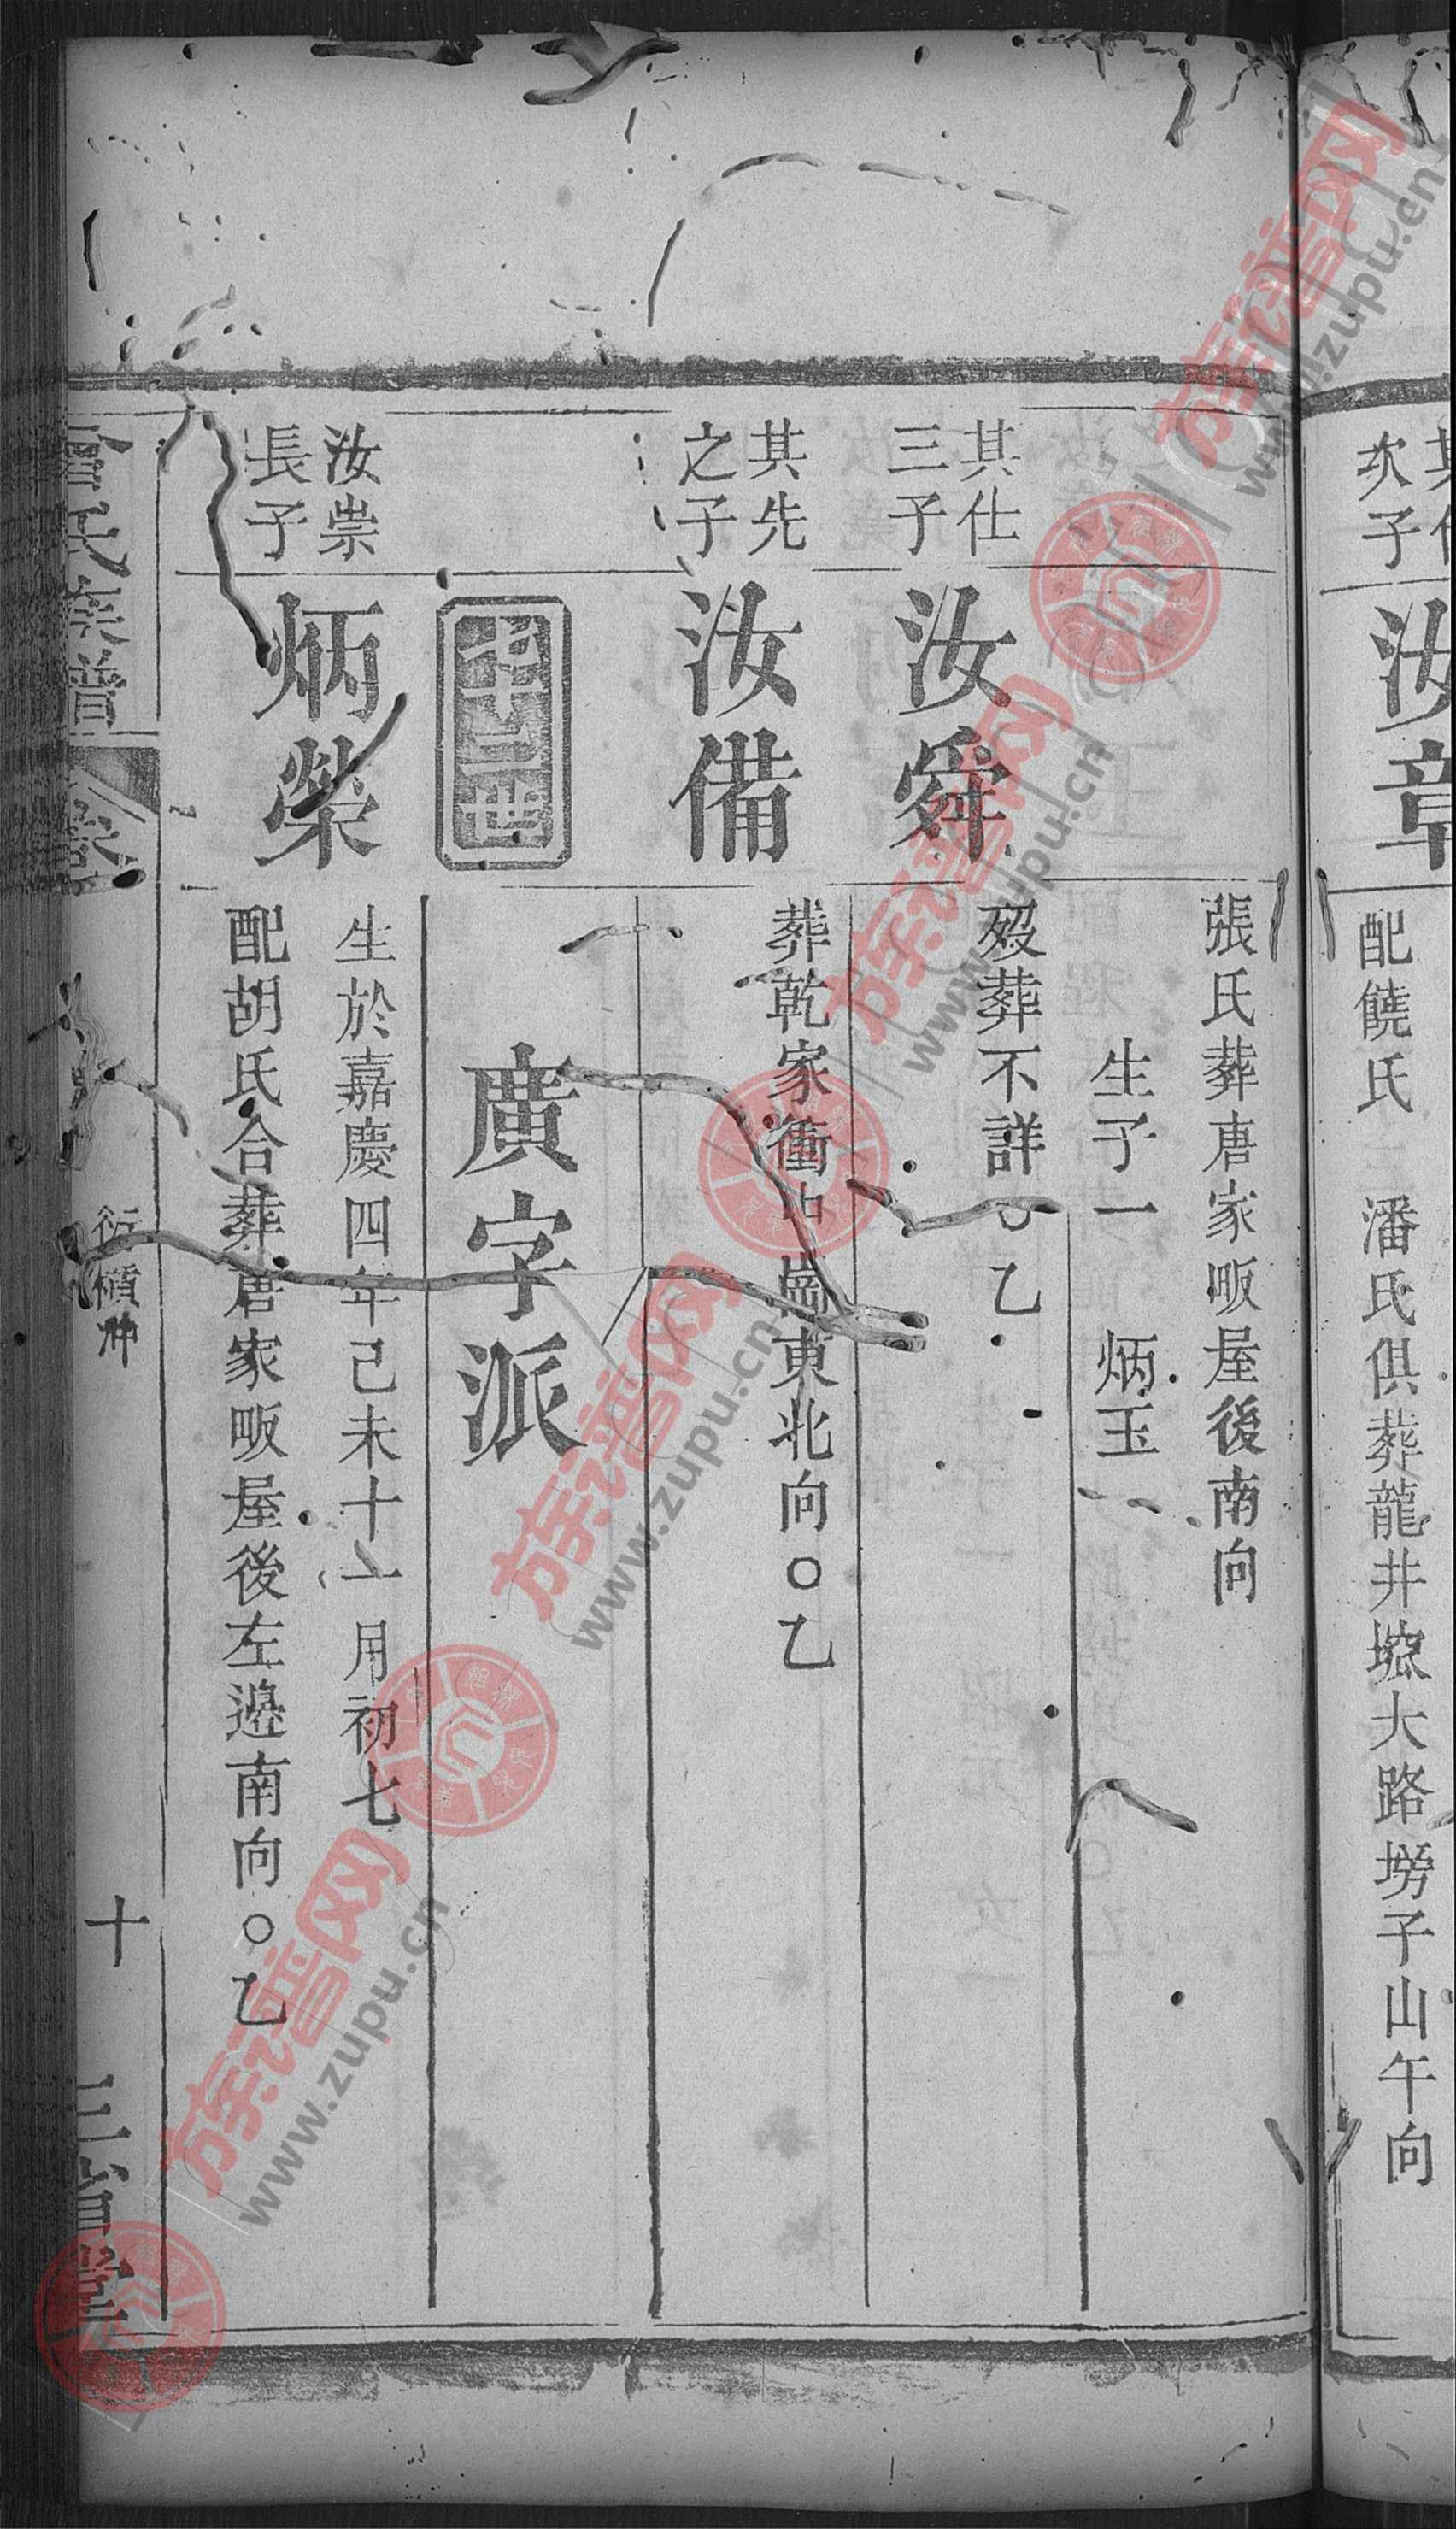 次子
汝章
配饒氏
潘氏俱葬龍井塝大路塝子山午向
張氏葬唐家畈屋後南向
生子一 炳玉
其仕
三子
汝舜
歿葬不詳○乙
其先
之子
汝備
葬乾家衝中崗東北向○乙
十二世
廣字派
汝崇
長子
炳榮
生於嘉慶四年己未十一月初七
配胡氏合葬唐家畈屋後左邊南向○乙
曾氏宗譜
十
三省堂
族谱网
www.zupu.cn
族谱网
www.zupu.cn
族谱网
www.zupu.cn
族谱网
www.zupu.cn